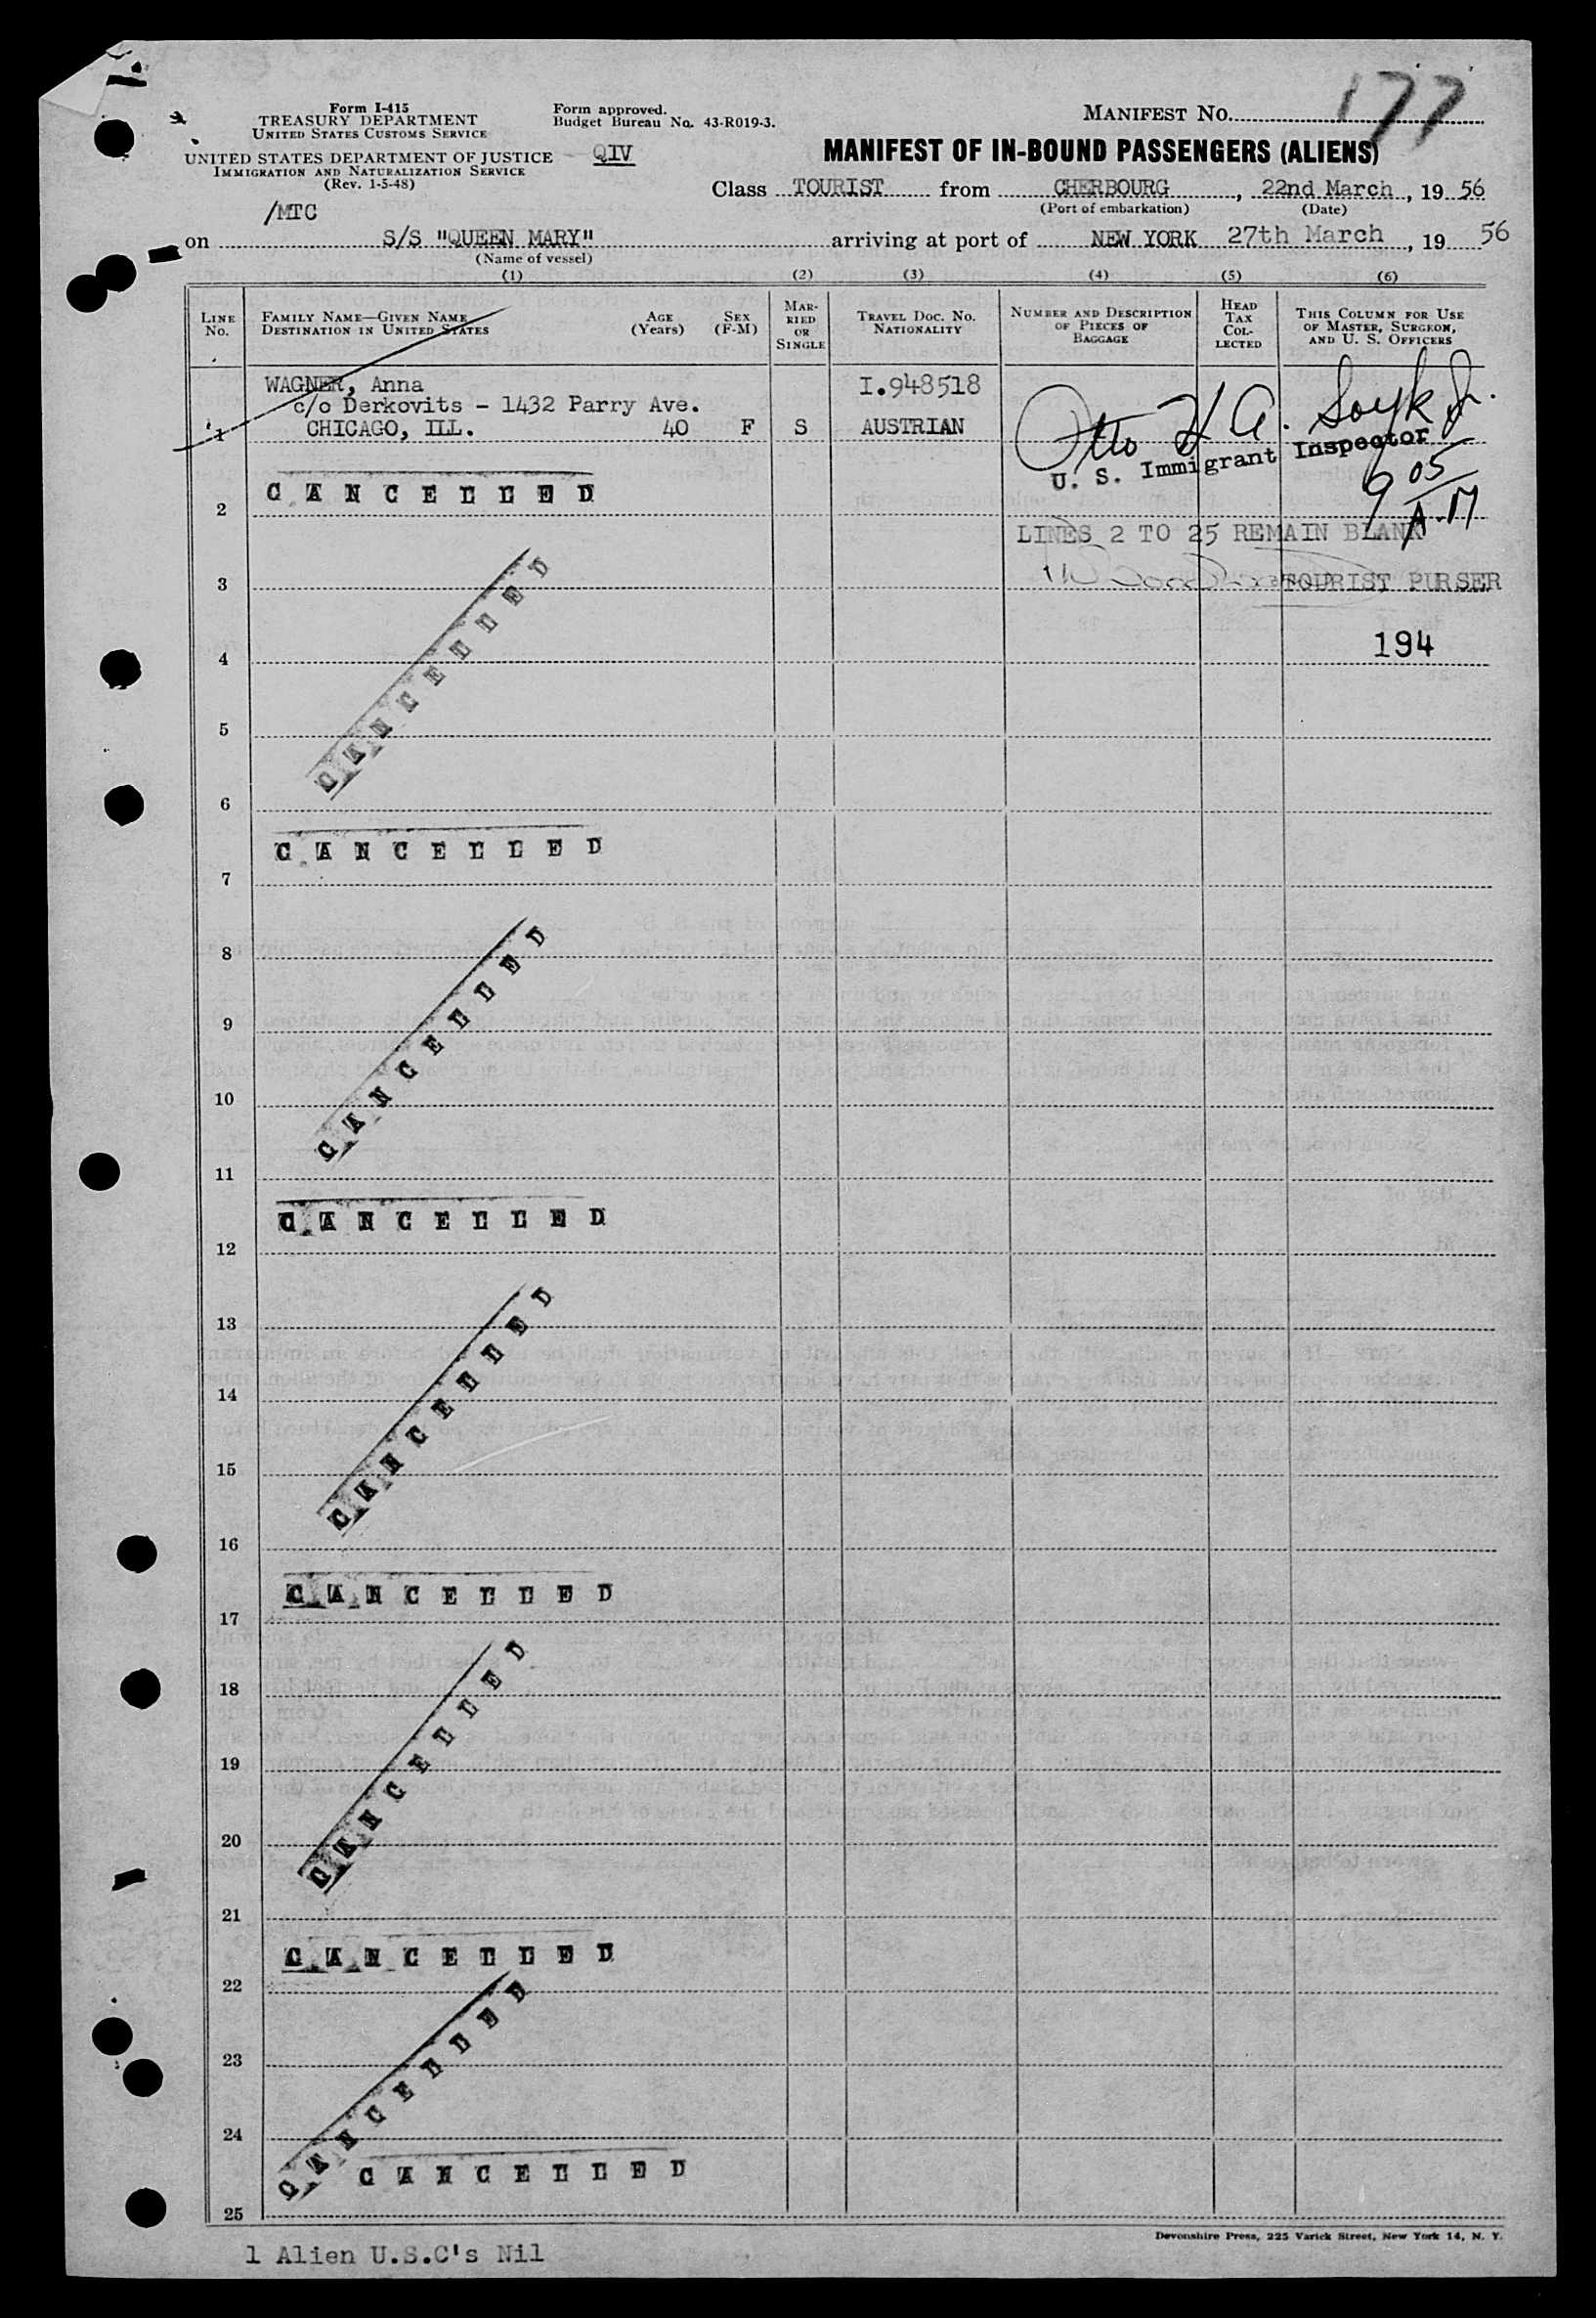 Form I-415
TREASURY DEPARTMENT
UNITED STATES CUSTOMS SERVICE
UNITED STATES DEPARTMENT OF JUSTICE
IMMIGRATION AND NATURALIZATION SERVICE
(Rev. 1-5-48)
Form approved.
Budget Bureau No. 43-R019-3.
QIV
/MTC
MANIFEST NO. 177
MANIFEST OF IN-BOUND PASSENGERS (ALIENS)
Class TOURIST from CHERBOURG, 22nd March, 19 56
(Port of embarkation) (Date)
on S/S "QUEEN MARY" arriving at port of NEW YORK 27th March, 19 56
(Name of vessel)
(1) (2) (3) (4) (5) (6)
LINE No.
FAMILY NAME—GIVEN NAME
DESTINATION IN UNITED STATES
AGE (Years)
SEX (F-M)
MARRIED OR SINGLE
TRAVEL DOC. NO. NATIONALITY
NUMBER AND DESCRIPTION OF PIECES OF BAGGAGE
HEAD TAX COLLECTED
THIS COLUMN FOR USE OF MASTER, SURGEON, AND U. S. OFFICERS
WAGNER, Anna I.948518
c/o Derkovits - 1432 Parry Ave.
1 CHICAGO, ILL. 40 F S AUSTRIAN
Otto H A. Soyk Jr.
U. S. Immigrant Inspector
9 05 A.M
CANCELLED
2
LINES 2 TO 25 REMAIN BLANK
TOURIST PURSER
3
194
4
CANCELLED
5
6
CANCELLED
7
8
CANCELLED
9
10
11
CANCELLED
12
13
CANCELLED
14
15
16
CANCELLED
17
18
CANCELLED
19
20
21
CANCELLED
22
23
CANCELLED
24
CANCELLED
25
Devonshire Press, 225 Varick Street, New York 14, N. Y.
1 Alien U.S.C's Nil